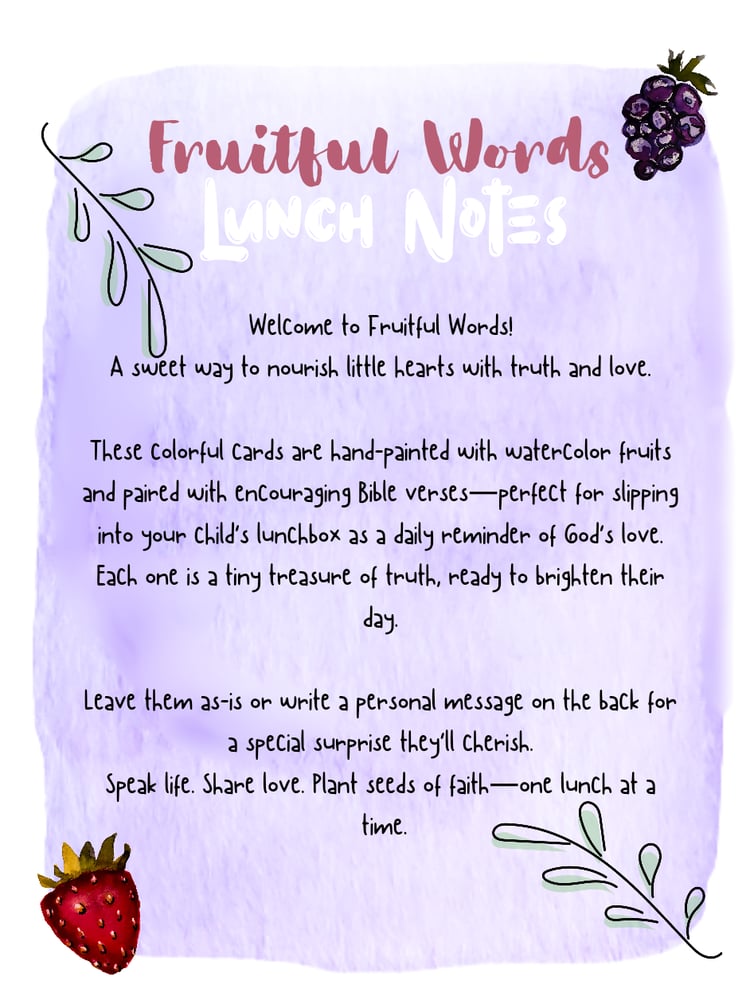 Fruitful Words
Lunch Notes
Welcome to Fruitful Words!
A sweet way to nourish little hearts with truth and love.
These colorful cards are hand-painted with watercolor fruits
and paired with encouraging Bible verses—perfect for slipping
into your child's lunchbox as a daily reminder of God's love.
Each one is a tiny treasure of truth, ready to brighten their
day.
Leave them as-is or write a personal message on the back for
a special surprise they'll cherish.
Speak life. Share love. Plant seeds of faith—one lunch at a
time.